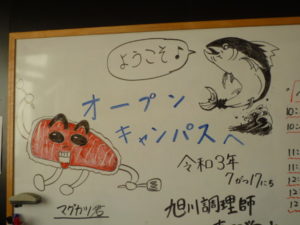 ようこそ♪
オープン
キャンパスへ
令和3年
7がつ17にち
旭川調理師
マグカツ君
10:
10:
11:
11:
12:
12: